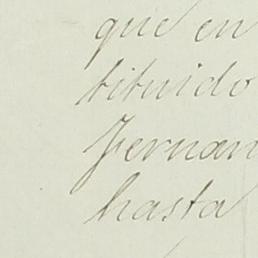 que en
tituido
Fernan
hasta